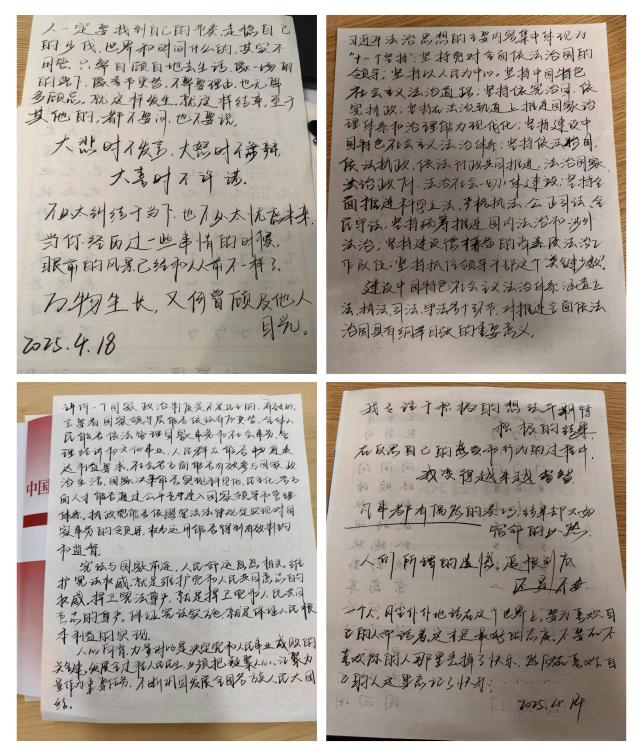 人一定要找到自己的节奏,走稳自己
的步伐,世界和时间什么的,其实不
用管,只管自顾自地去生活,像一场雨
的落下,像季节更替,不需要理由,也无需
多顾忌,就这样发生,就这样结束,至于
其他的,都不要问,也不要说。
大悲时不发言,大怒时不争辩
大喜时不许诺.
不必太纠结于当下,也不必太忧虑未来,
当你经历过一些事情的时候,
眼前的风景已经和从前不一样了.
万物生长,又何曾顾及他人
目光。
2025.4.18
习近平法治思想的主要内容集中体现为
"十一个坚持":坚持党对全面依法治国的
领导;坚持以人民为中心;坚持中国特色
社会主义法治道路;坚持依宪治国、依
宪执政;坚持在法治轨道上推进国家治
理体系和治理能力现代化;坚持建设中
国特色社会主义法治体系;坚持依法治国,
依法执政、依法行政共同推进,法治国家、
法治政府、法治社会一体建设;坚持全
面推进科学立法、严格执法、公正司法、全
民守法;坚持统筹推进国内法治和涉外
法治;坚持建设德才兼备的高素质法治工
作队伍;坚持抓住领导干部这个"关键少数".
建设中国特色社会主义法治体系,涵盖立
法、执法、司法、守法等环节,对推进全面依法
治国具有纲举目张的重要意义。
中国
评价一个国家政治制度是不是民主的、有效的,
主要看国家领导层能否依法有序更替,全体人
民能否依法管理国家事务和社会事务、管
理经济和文化事业,人民群众能否畅通表
达利益要求,社会各方面能否有效参与国家政
治生活,国家决策能否实现科学化、民主化,各方
面人才能否通过公平竞争进入国家领导和管理
体系,执政党能否依照宪法法律规定实现对国
家事务的领导,权力运用能否得到有效制约
和监督。
宪法与国家前途、人民命运息息相关,维
护宪法权威,就是维护党和人民共同意志的
权威,捍卫宪法尊严,就是捍卫党和人民共同
意志的尊严,保证宪法实施,就是保证人民根
本利益的实现。
人心向背、力量对比是决定党和人民事业成败的
关键,发展全过程人民民主,必须把凝聚人心、汇聚力
量作为重要任务,不断巩固发展全国各族人民大团
结。
我专注于积极的想法并期待
积极的结果
在反思自己的感受和行为的过程中
我变得越来越智慧
凡事都有偶然的凑巧,结果却又如
宿命的必然
人们所谓的遗憾,追根到底
还是不甘
一个人,风尘仆仆地活在这个世界上,要为喜欢自
己的人而活着,这才是最好的态度,不要在不
喜欢你的人那里丢掉了快乐,然后在喜欢自
己的人这里忘记了快乐.
2025.4.14